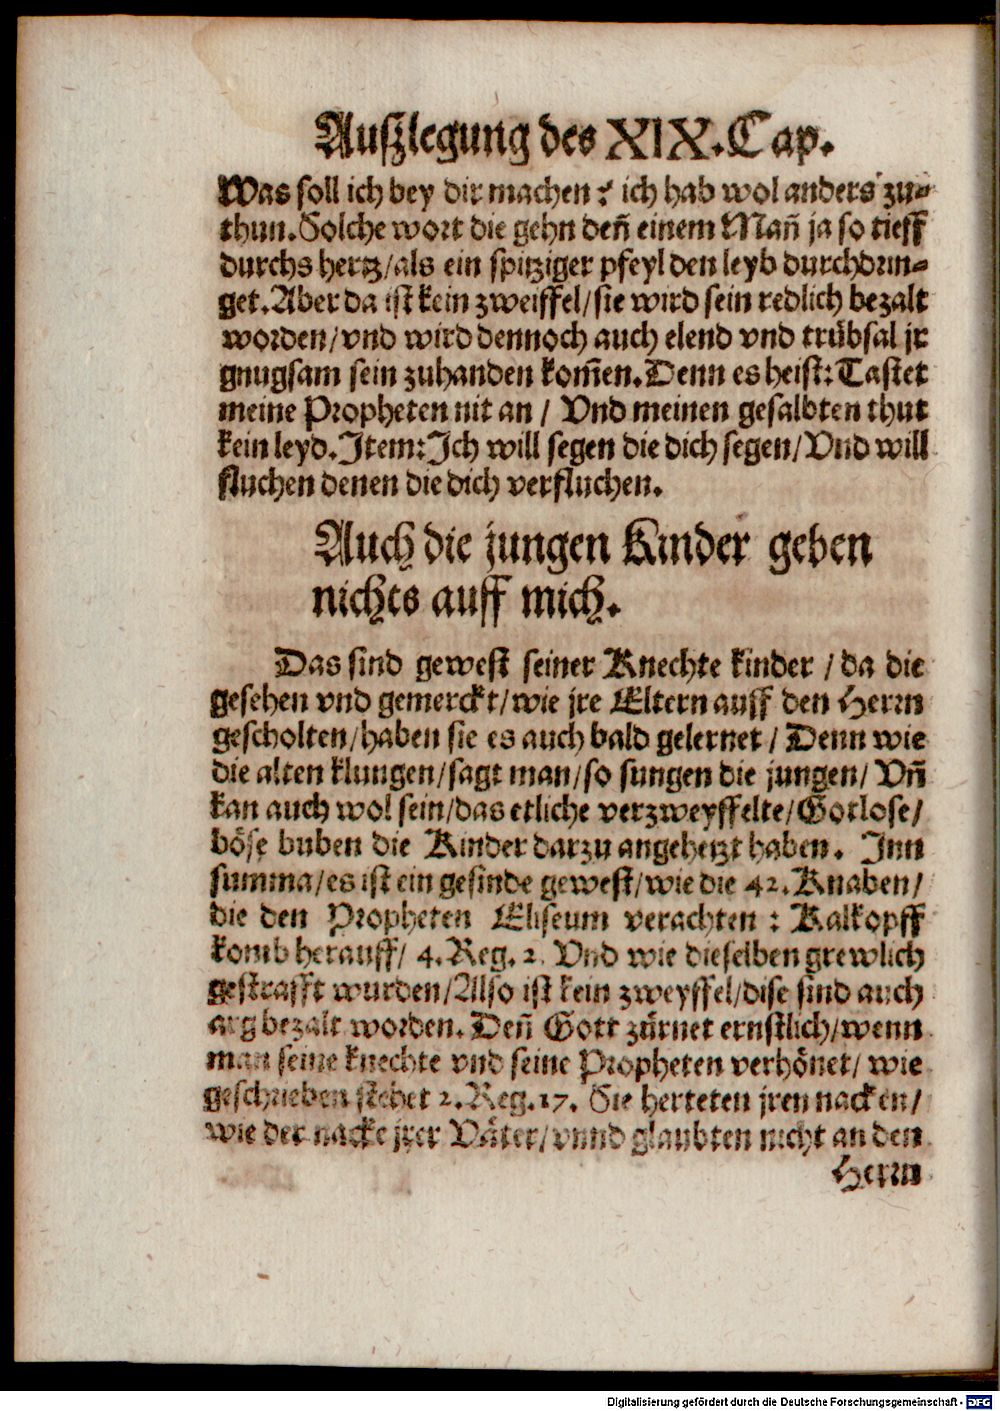 Auſzlegung des XIX. Cap.
Was soll ich bey dir machen? ich hab wol anders zu-
thun. Solche wort die gehn deñ einem Mañ ja so tieff
durchs hertz/als ein spitziger pfeyl den leyb durchdrin-
get. Aber da ist kein zweiffel/sie wird sein redlich bezalt
worden/vnd wird dennoch auch elend vnd trübsal jr
gnugsam sein zuhanden kom̃en. Denn es heist: Tastet
meine Propheten nit an / Vnd meinen gesalbten thut
kein leyd. Item: Ich will segen die dich segen/Vnd will
fluchen denen die dich verfluchen.
Auch die jungen Kinder geben
nichts auff mich.
Das sind gewest seiner Knechte kinder / da die
gesehen vnd gemerckt/wie jre Eltern auff den Herrn
gescholten/haben sie es auch bald gelernet / Denn wie
die alten klungen/sagt man/so sungen die jungen/ Vñ
kan auch wol sein/das etliche verzweyffelte/Gotlose/
böse buben die Kinder darzu angehetzt haben. Inn
summa/es ist ein gesinde gewest/wie die 42. Knaben/
die den Propheten Eliseum verachten : Kalkopff
komb herauff/ 4. Reg. 2. Vnd wie dieselben grewlich
gestrafft wurden/Also ist kein zweyffel/dise sind auch
arg bezalt worden. Deñ Gott zürnet ernstlich/wenn
man seine knechte vnd seine Propheten verhönet/ wie
geschrieben stehet 2. Reg. 17. Sie herteten jren nacken/
wie der nacke jrer Väter/vnnd glaubten nicht an den
Herrn
Digitalisierung gefördert durch die Deutsche Forschungsgemeinschaft - DFG